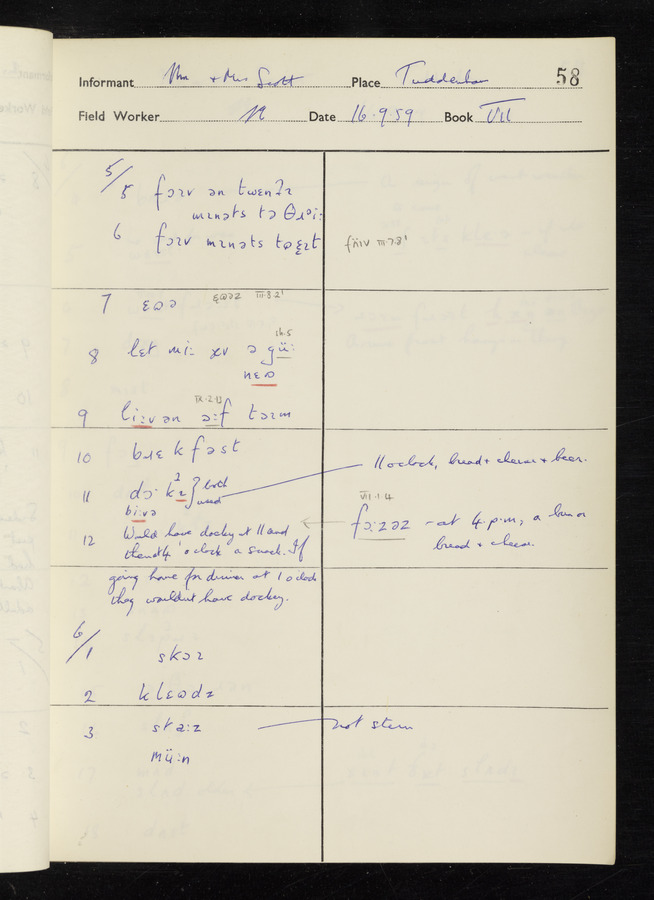 Informant Mr + Mrs Scott Place Tuddenham 58
Field Worker N Date 16.9.59 Book VII
5/5 fɔɪv ən twenʔɪ
mɪnəts tə θɹəi:
6 fɔɪv mɪnəts tə ɛɪt fʌ̈ɪv III.7.8'
7 ɛʊə ɛʊəz III.3.2'
8 lɛt mi: ɣv ə gü:
nɛʊ
9 li:vən ə:f tɔɪm IX.2.13
10 bɹɛkfəst
11 dɔ·kɪ 2 } both used 11 oclock, bread + cheese + beer.
bi:və
12 Would have dockey at 11 and
then at 4 o'clock a snack. If
going home for dinner at 1 oclock
they wouldn't have dockey.
VII.1.4
fɔ:zəz - at 4 p.m., a bun or
bread + cheese.
6/1 skɔɪ
2 klɛʊdz
3 sta:z not stern
mü:n